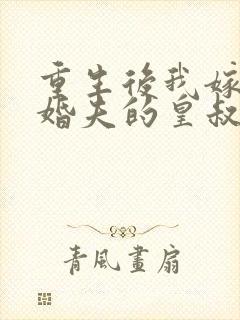 重生後我嫁
婚夫的皇叔
青風畫扇